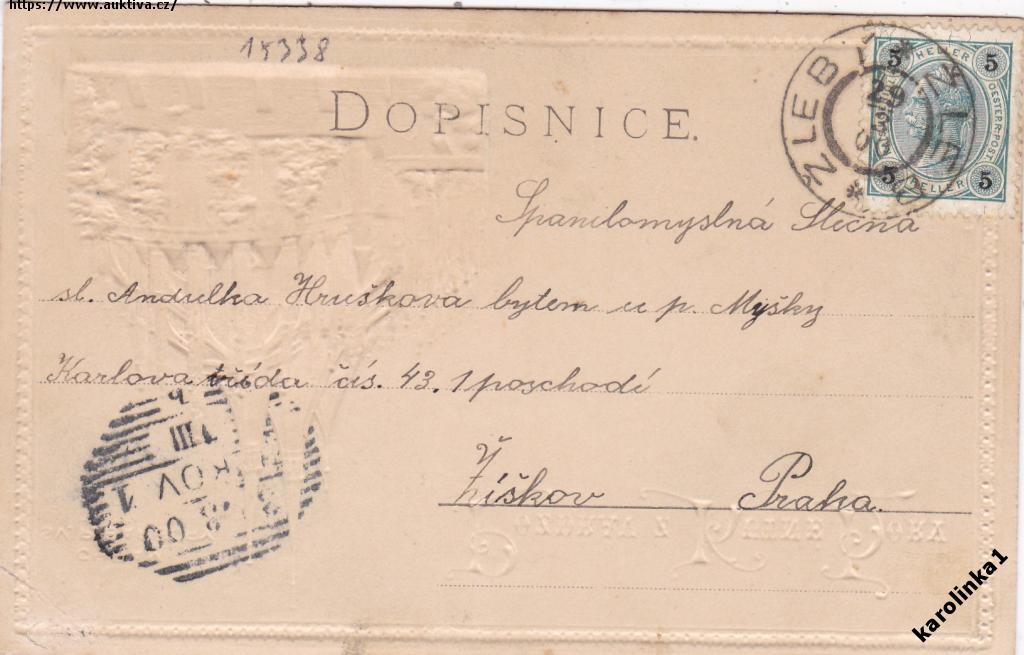 https://www.auktiva.cz/
14338
DOPISNICE.
5 HELLER 5
OESTERR·POST
5 HELLER 5
ŽLEB
Spanilomyslná Slečna
sl. Andulka Hruškova bytem u p. Myšky
Karlova třída čís. 43. 1 poschodí
Žižkov Praha.
KOV 1
VIII
00
karolinka1